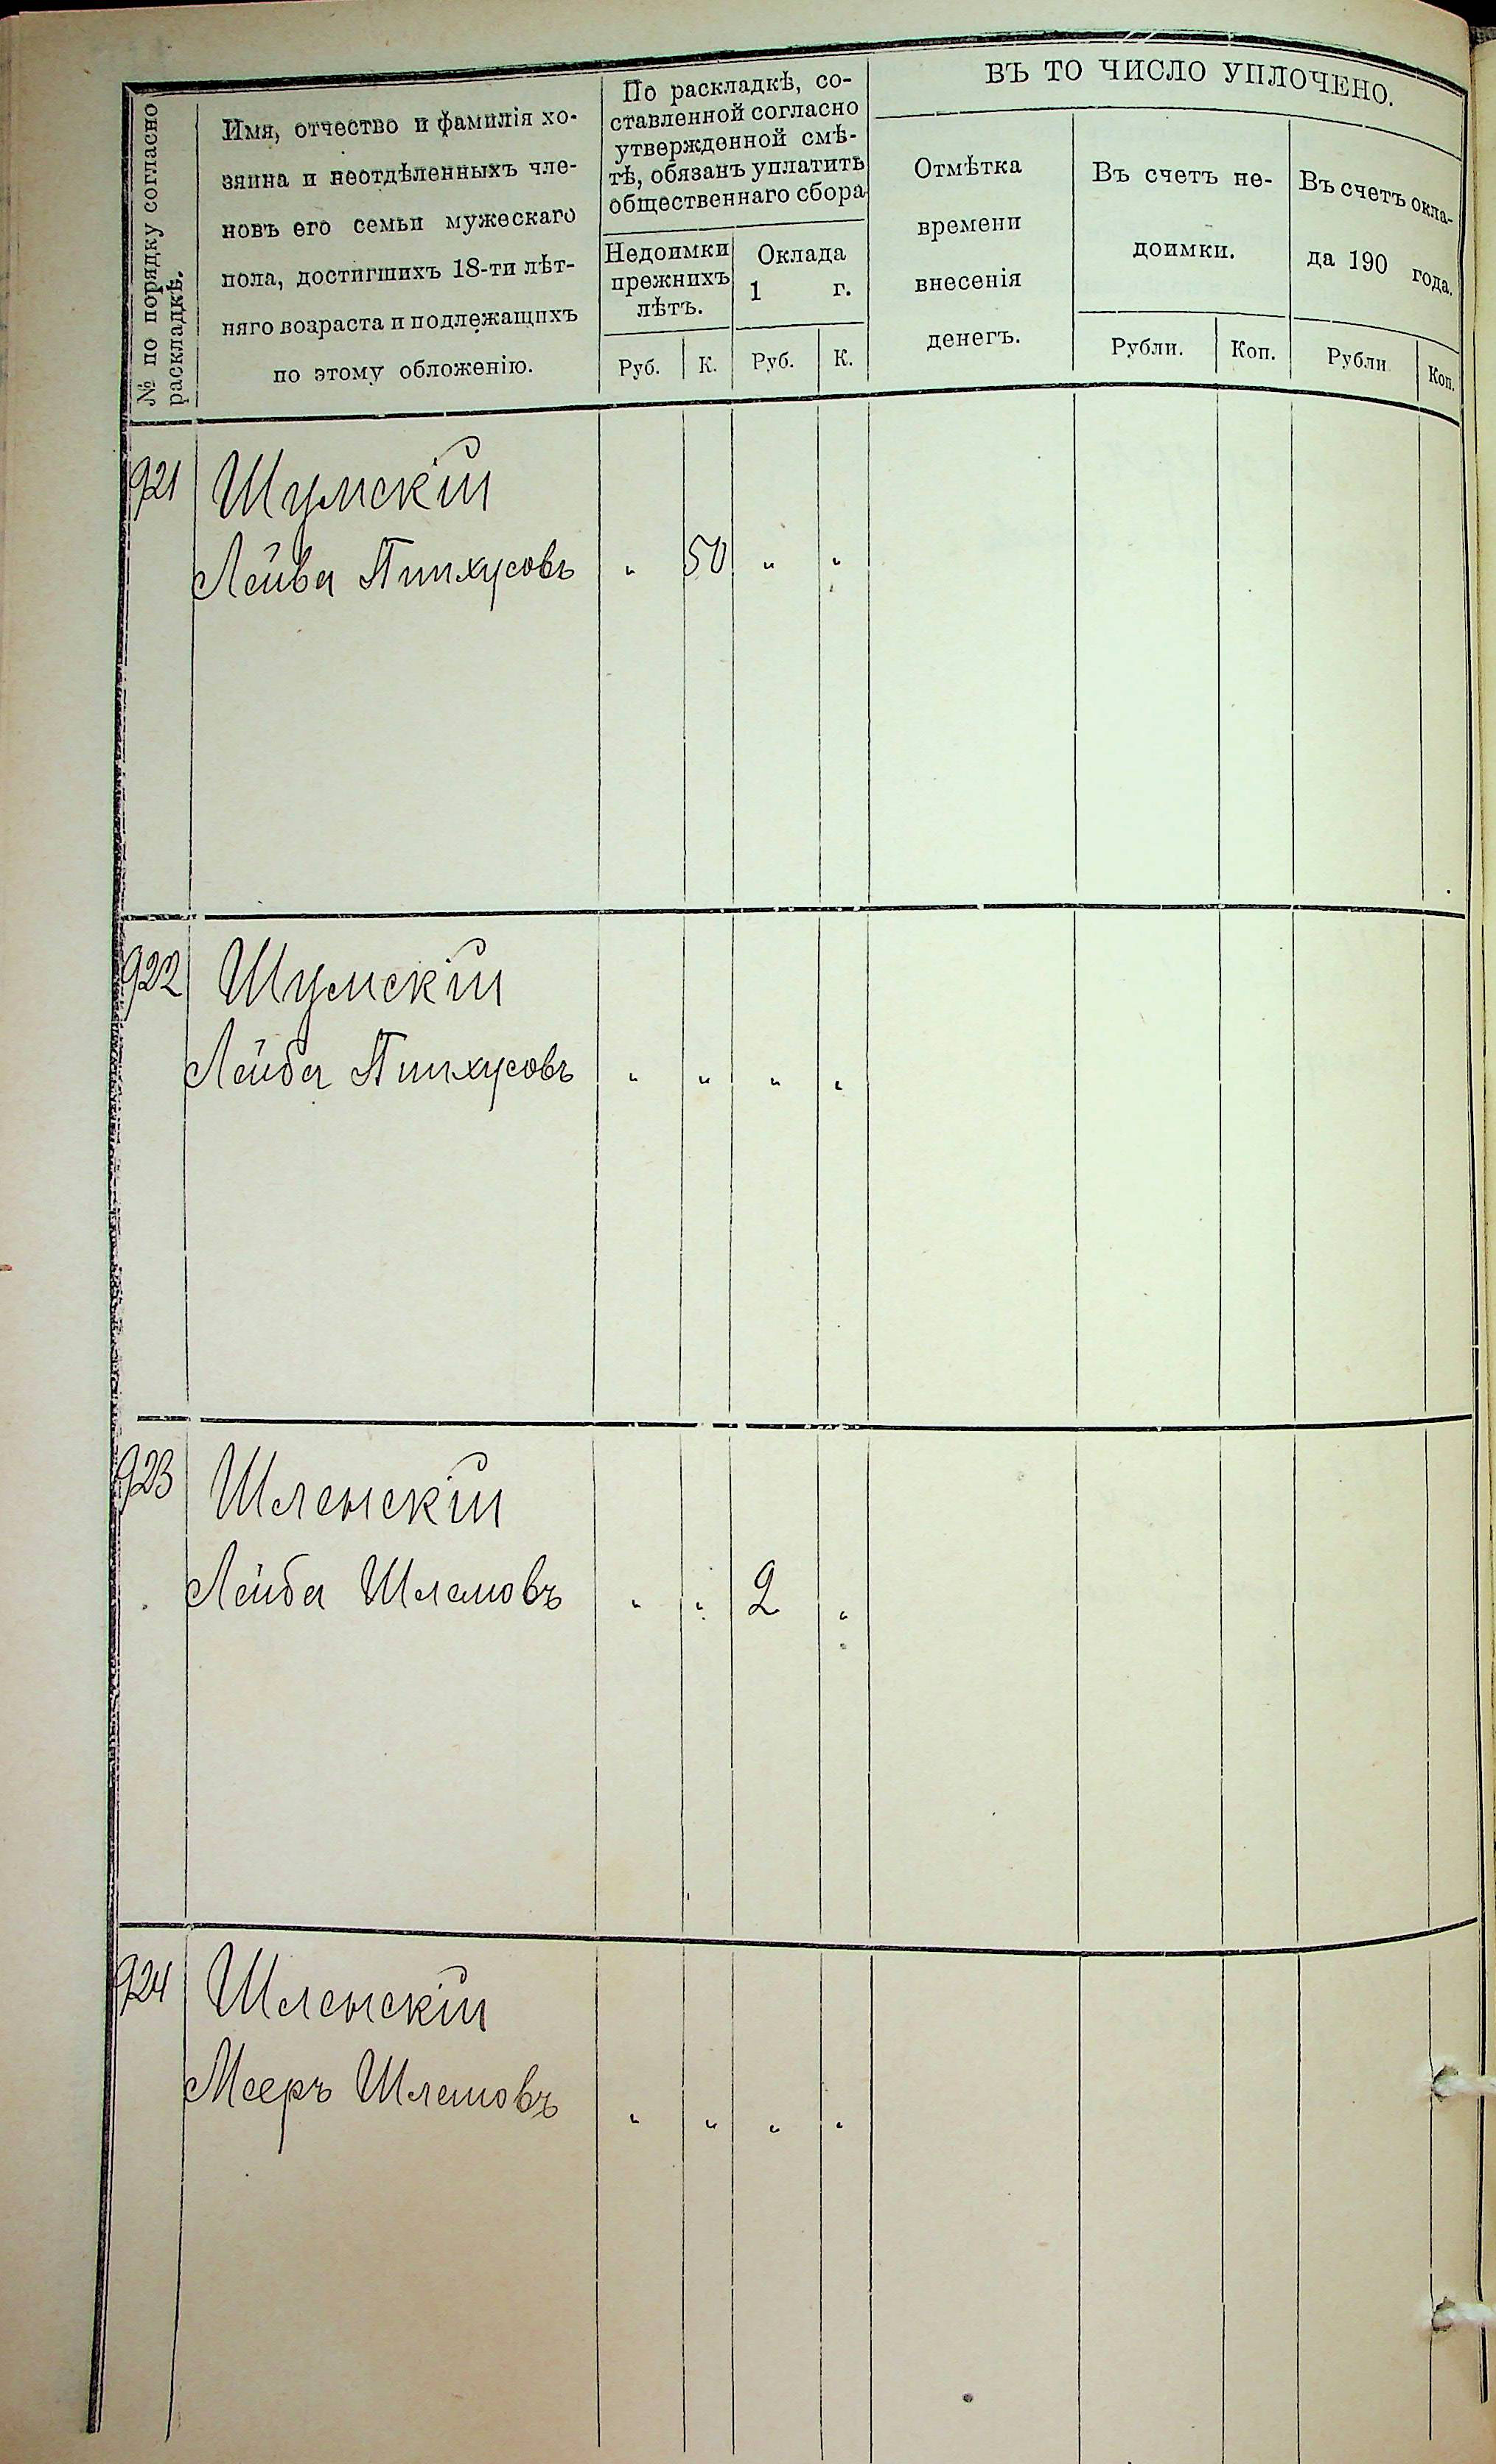 № по порядку согласно
раскладкѣ.
Имя, отчество и фамилія хо-
зяина и неотдѣленныхъ чле-
новъ его семьи мужескаго
пола, достигшихъ 18-ти лѣт-
няго возраста и подлежащихъ
по этому обложенію.
По раскладкѣ, со-
ставленной согласно
утвержденной смѣ-
тѣ, обязанъ уплатить
общественнаго сбора
Недоимки
прежнихъ
лѣтъ.
Оклада
1 г.
Руб. К. Руб. К.
ВЪ ТО ЧИСЛО УПЛОЧЕНО.
Отмѣтка
времени
внесенія
денегъ.
Въ счетъ не-
доимки.
Рубли. Коп.
Въ счетъ окла-
да 190 года.
Рубли Коп.
921 Шумскій
Лейва Пинхусовъ „ 50 „ „
922 Шумскій
Лейба Пинхусовъ „ „ „ „
923 Шленскій
Лейба Шлемовъ „ „ 2 „
924 Шленскій
Мееръ Шлемовъ „ „ „ „